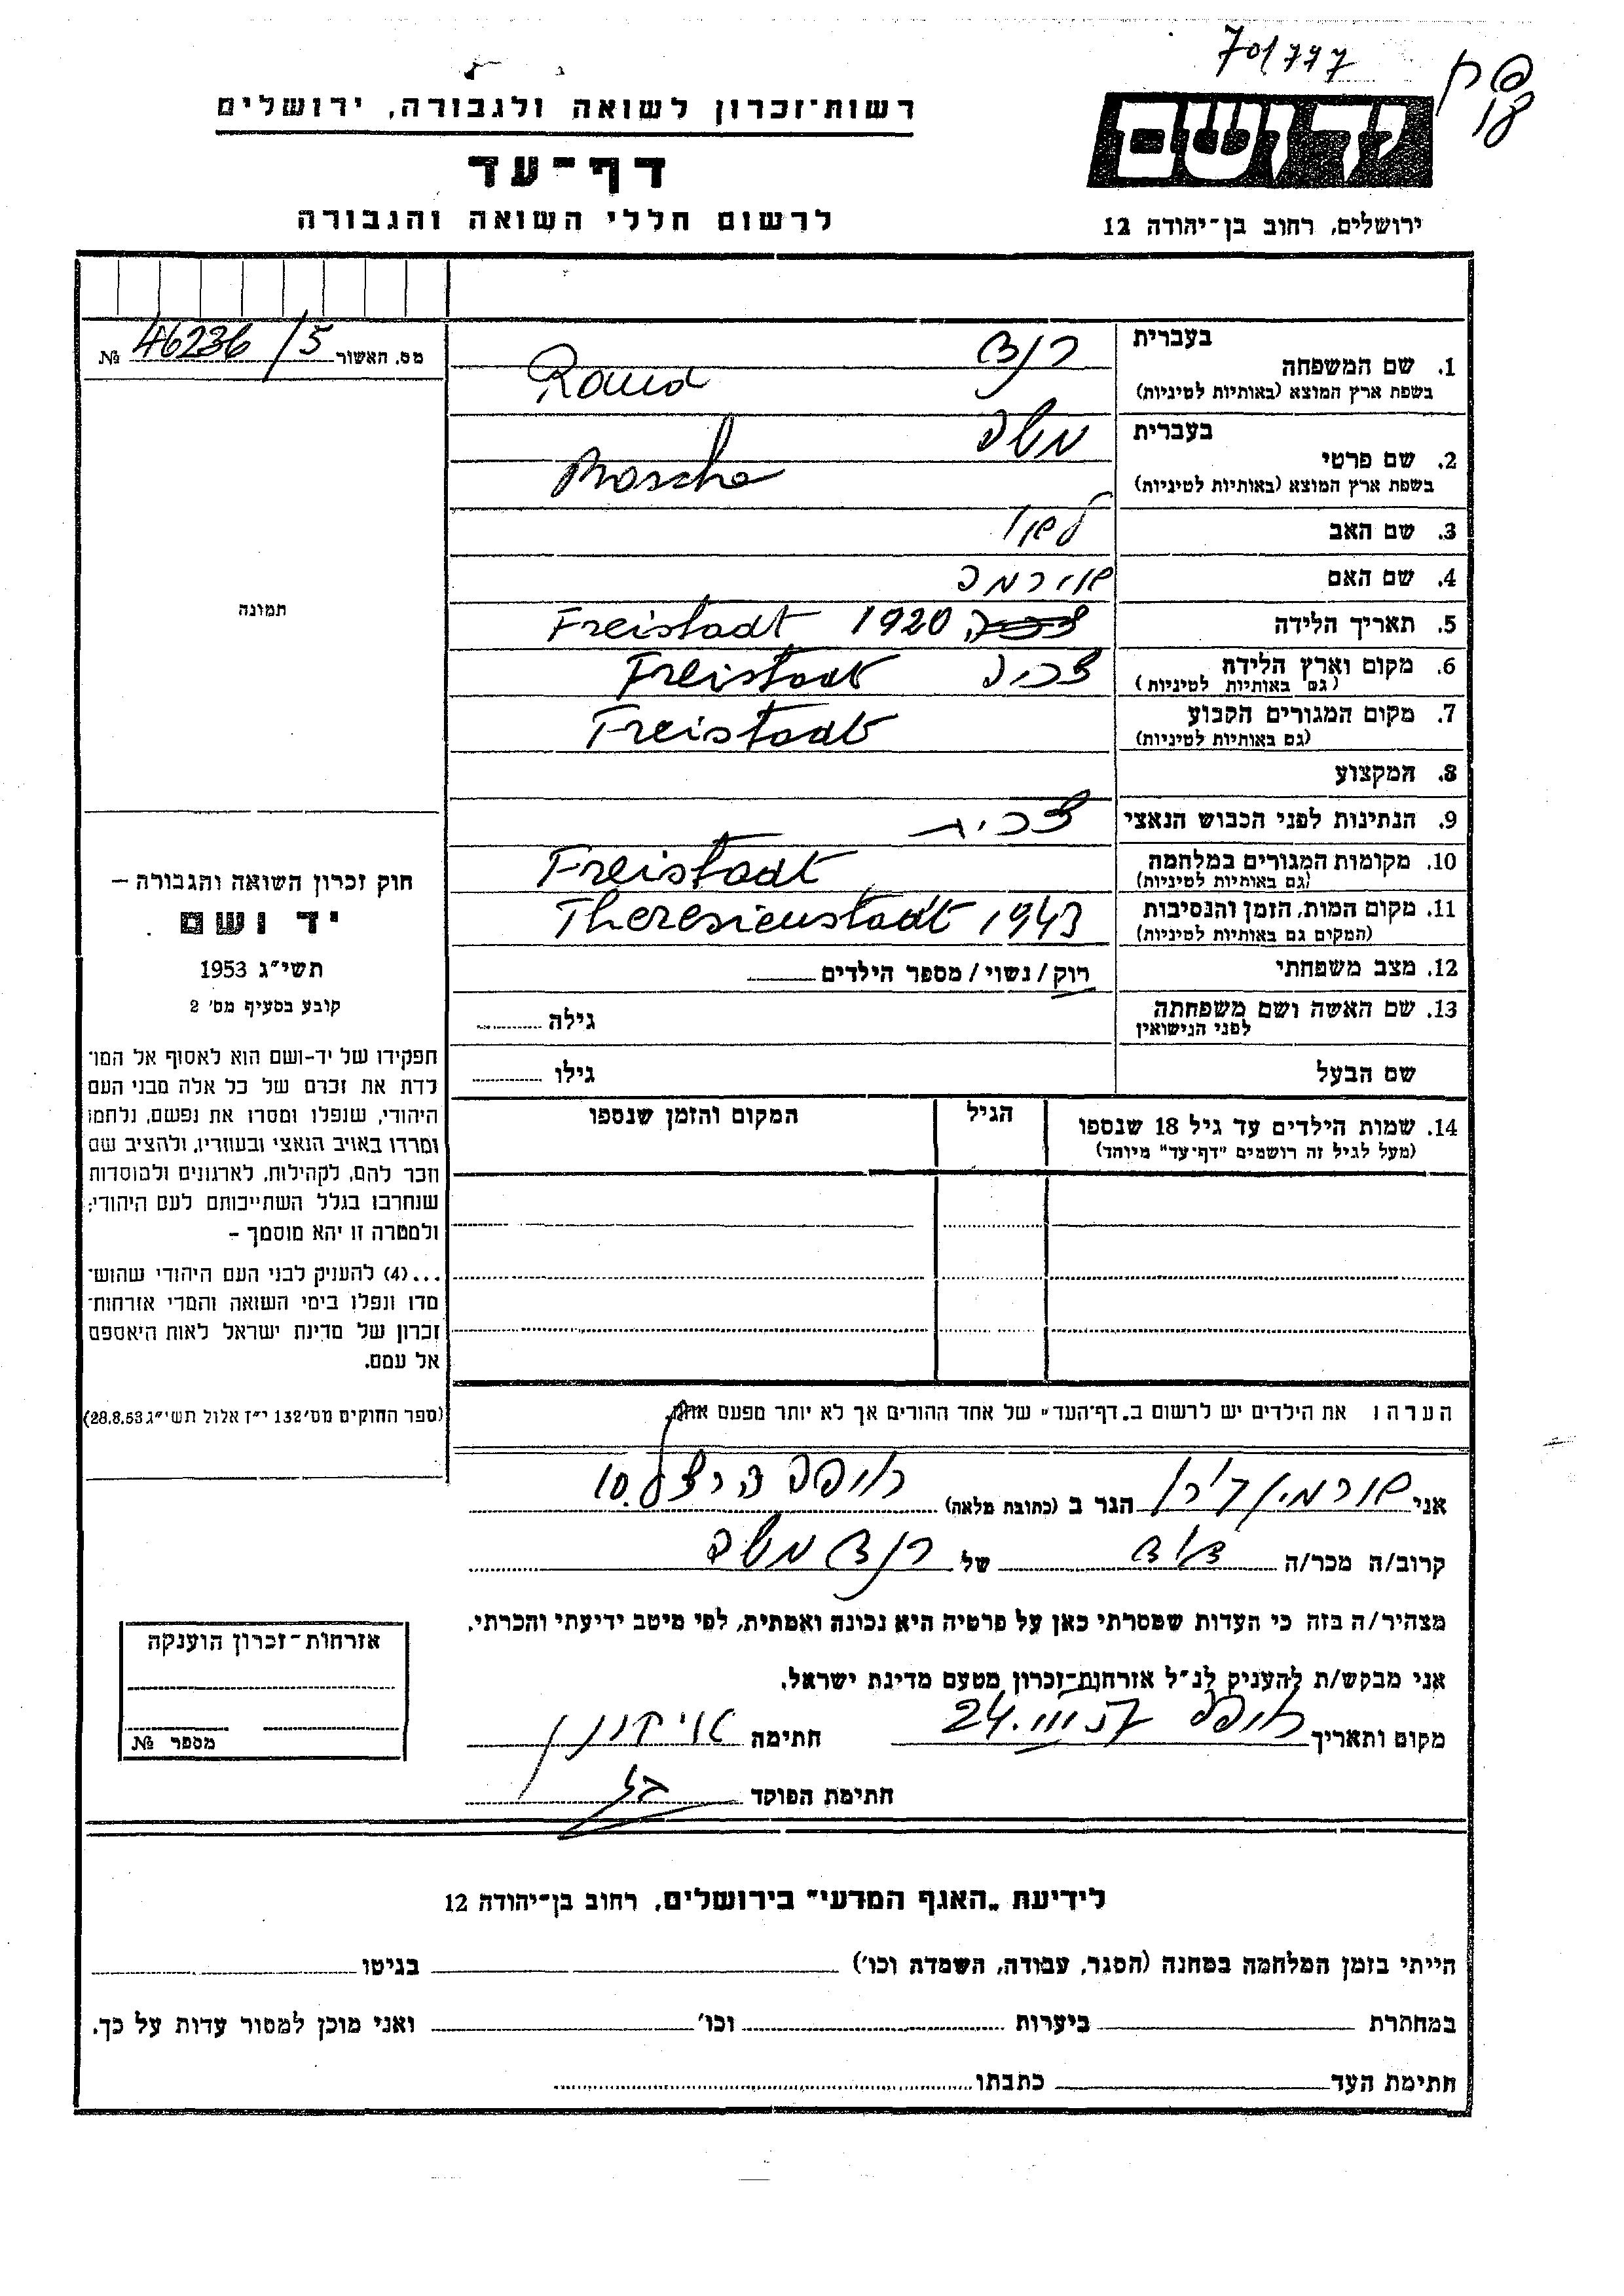 70/777
רשות־זכרון לשואה ולגבורה, ירושלים
דף־עד
לרשום חללי השואה והגבורה
יד ושם
ירושלים, רחוב בן־יהודה 12
מס. האשור 46236/5 №
תמונה
חוק זכרון השואה והגבורה –
יד ושם
תשי״ג 1953
קובע בסעיף מס׳ 2
תפקידו של יד-ושם הוא לאסוף אל המו־
לדת את זכרם של כל אלה מבני העם
היהודי, שנפלו ומסרו את נפשם, נלחמו
ומרדו באויב הנאצי ובעוזריו, ולהציב שם
וזכר להם, לקהילות, לארגונים ולמוסדות
שנחרבו בגלל השתייכותם לעם היהודי;
ולמטרה זו יהא מוסמך –
...(4) להעניק לבני העם היהודי שהוש־
מדו ונפלו בימי השואה והמרי אזרחות־
זכרון של מדינת ישראל לאות היאספם
אל עמם.
(ספר החוקים מס׳ 132 י״ז אלול תשי״ג 28.8.53)
בעברית רנד
1. שם המשפחה
בשפת ארץ המוצא (באותיות לטיניות) Rand
בעברית משה
2. שם פרטי
בשפת ארץ המוצא (באותיות לטיניות) Mosche
3. שם האב
4. שם האם
5. תאריך הלידה 1920 Freistadt
6. מקום וארץ הלידה Freistadt
(גם באותיות לטיניות)
7. מקום המגורים הקבוע Freistadt
(גם באותיות לטיניות)
8. המקצוע
9. הנתינות לפני הכבוש הנאצי צכית
10. מקומות המגורים במלחמה Freistadt
(גם באותיות לטיניות)
11. מקום המות, הזמן והנסיבות Theresienstadt 1943
(המקום גם באותיות לטיניות)
12. מצב משפחתי רוק/נשוי/מספר הילדים
13. שם האשה ושם משפחתה גילה
לפני הנישואין
שם הבעל גילו
14. שמות הילדים עד גיל 18 שנספו הגיל המקום והזמן שנספו
(מעל לגיל זה רושמים "דף־עד" מיוחד)
הערה: את הילדים יש לרשום ב„דף־העד" של אחד ההורים אך לא יותר מפעם אחת.
אני הגר ב (כתובת מלאה) חיפה הרצל 10.
קרוב/ה מכר/ה דוד של רנד משה
מצהיר/ה בזה כי העדות שמסרתי כאן על פרטיה היא נכונה ואמתית, לפי מיטב ידיעתי והכרתי.
אני מבקש/ת להעניק לנ״ל אזרחות־זכרון מטעם מדינת ישראל.
מקום ותאריך חיפה 24.III.57 חתימה
חתימת הפוקד
אזרחות־זכרון הוענקה
מספר №
לידיעת „האגף המדעי" בירושלים, רחוב בן־יהודה 12
הייתי בזמן המלחמה במחנה (הסגר, עבודה, השמדה וכו׳) בגיטו
במחתרת ביערות וכו׳ ואני מוכן למסור עדות על כך.
חתימת העד כתבתו